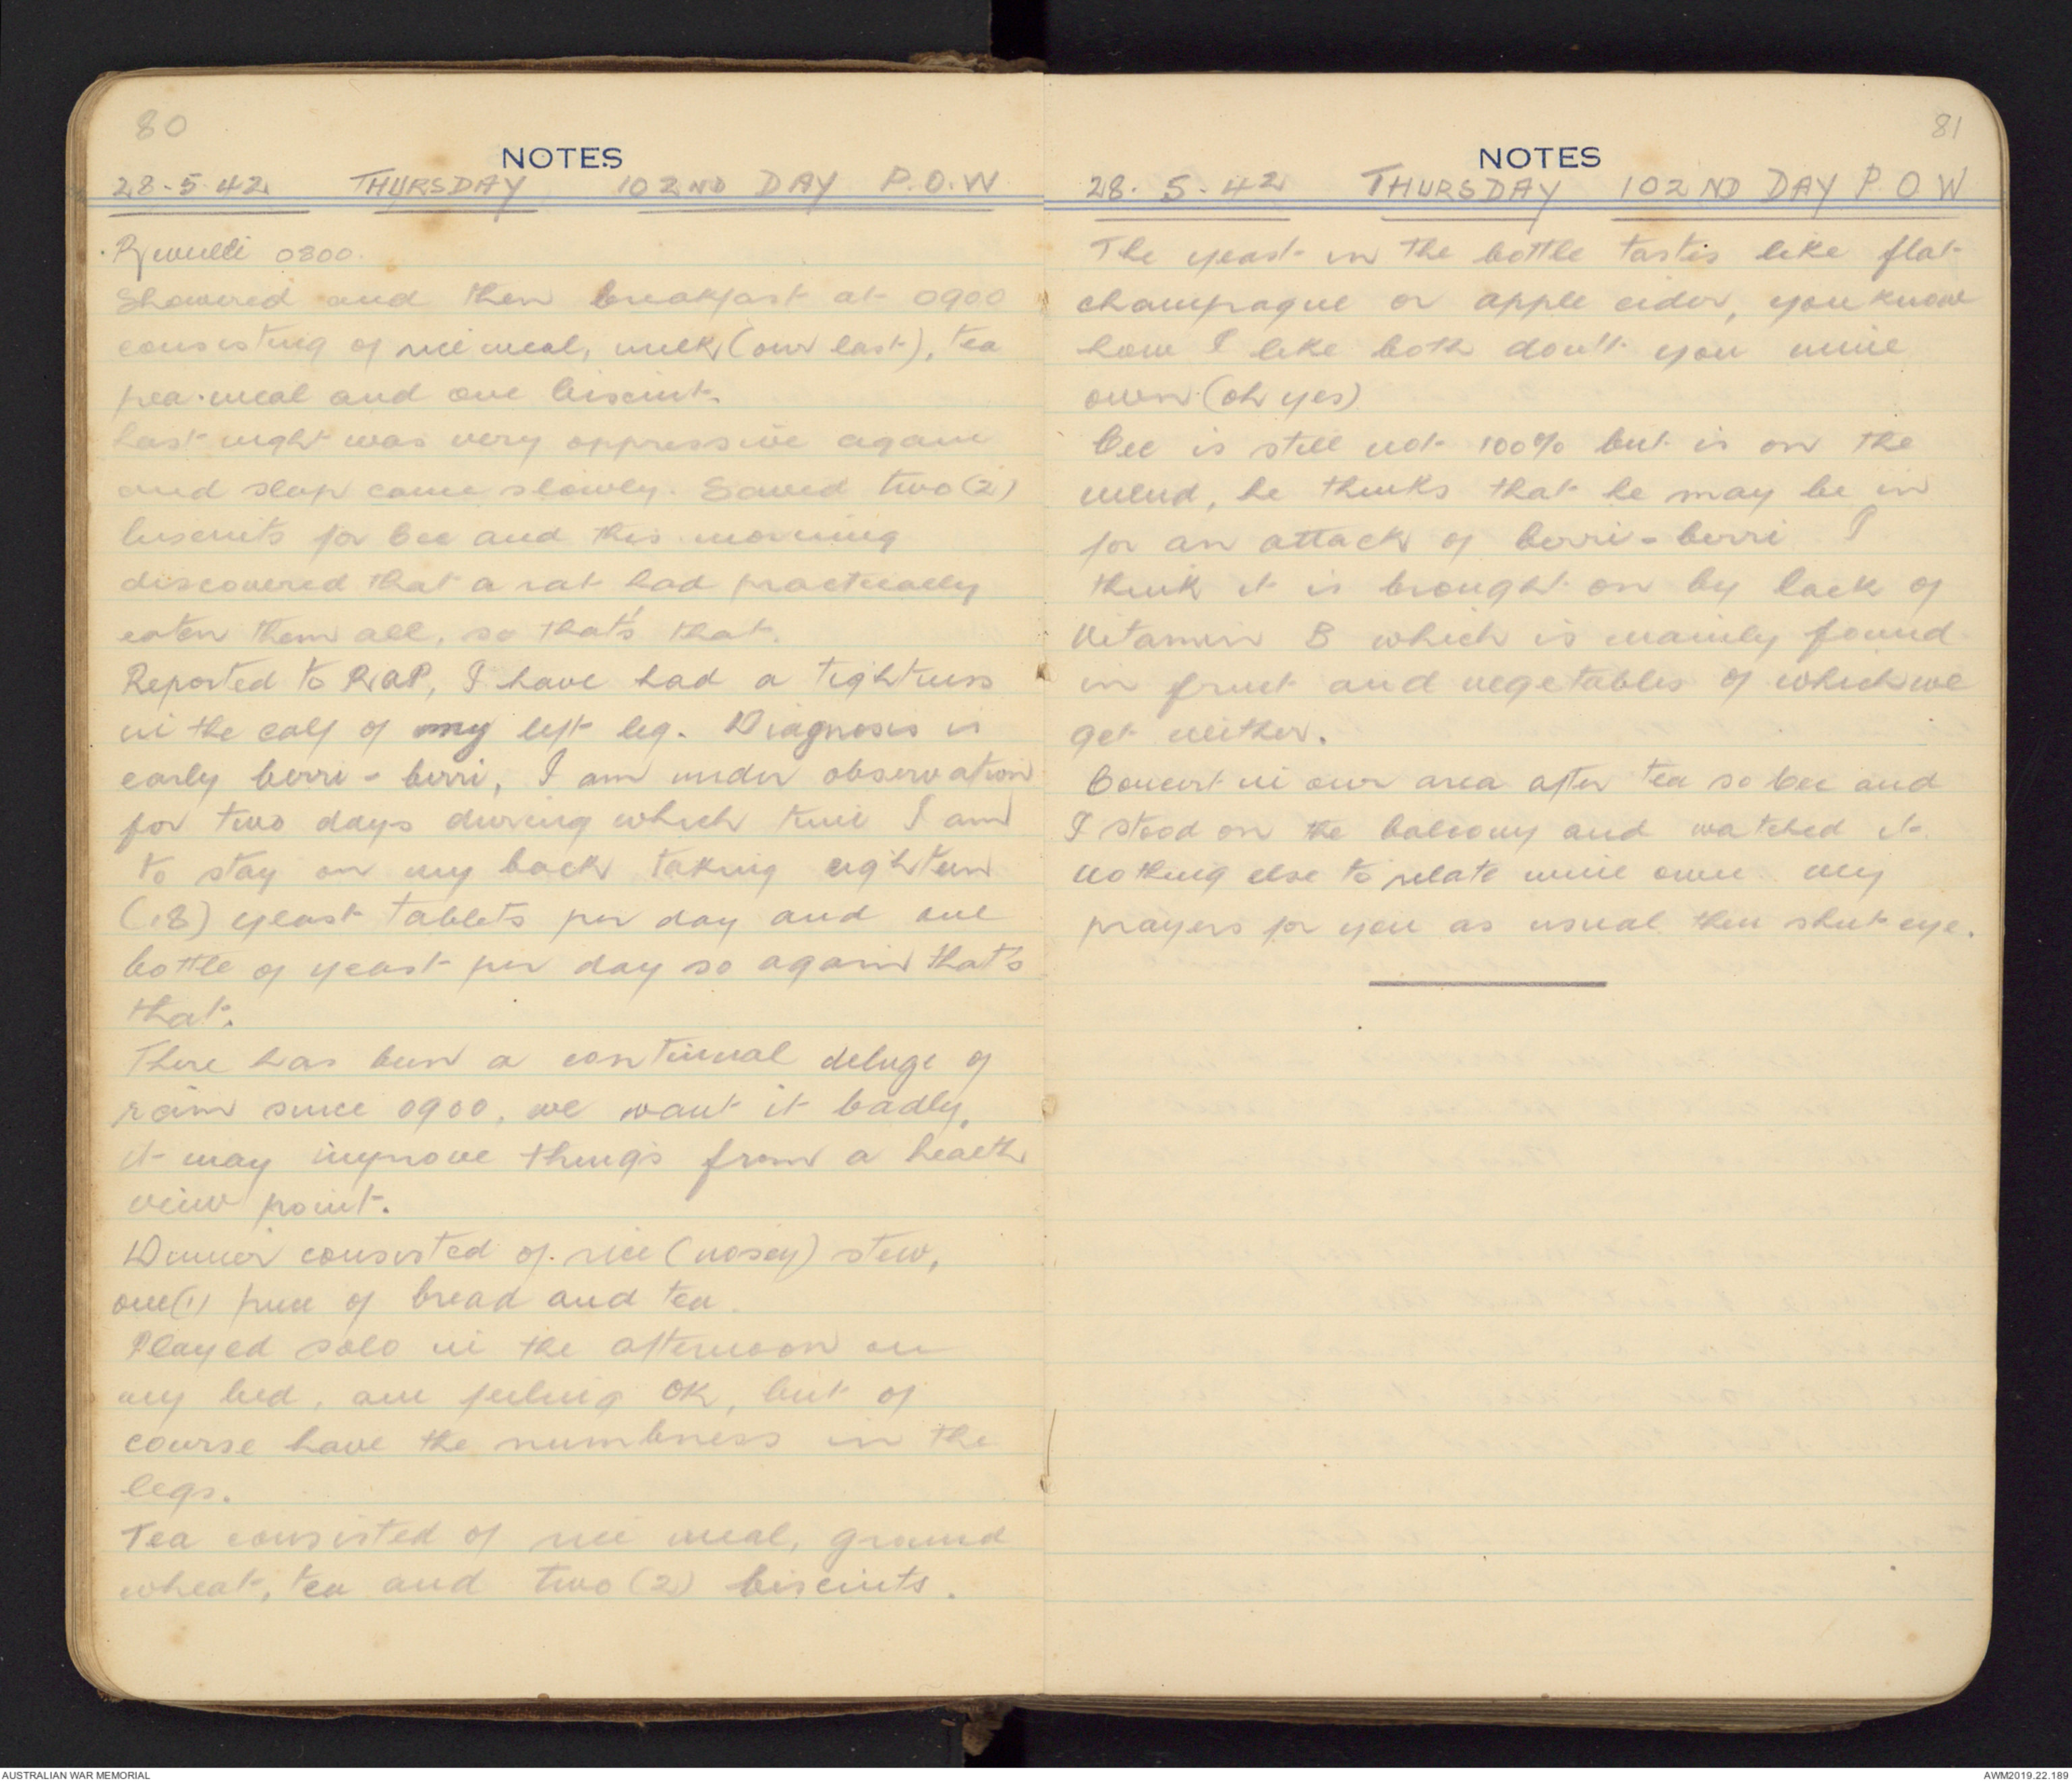 80
NOTES
28.5.42 THURSDAY 102ND DAY P.O.W
Reveille 0800.
Showered and then breakfast at 0900
consisting of rice meal, milk (our last), tea
pea-meal and one biscuit.
Last night was very oppressive again
and sleep came slowly. Saved two (2)
biscuits for Cec and this morning
discovered that a rat had practically
eaten them all, so that's that.
Reported to RAP, I have had a tightness
in the calf of my left leg. Diagnosis is
early berri-berri, I am under observation
for two days during which time I am
to stay on my back taking eighteen
(18) yeast tablets per day and one
bottle of yeast per day so again that's
that.
There has been a continual deluge of
rain since 0900, we want it badly,
it may improve things from a health
view point.
Dinner consisted of rice (nosey) stew,
one (1) piece of bread and tea.
Played solo in the afternoon on
my bed, am feeling OK, but of
course have the numbness in the
legs.
Tea consisted of rice meal, ground
wheat, tea and two (2) biscuits.
81
NOTES
28.5.42 THURSDAY 102ND DAY P.O.W
The yeast in the bottle tastes like flat
champagne or apple cider, you know
how I like both don't you mine
own (oh yes)
Cec is still not 100% but is on the
mend, he thinks that he may be in
for an attack of berri-berri I
think it is brought on by lack of
Vitamin B which is mainly found
in fruit and vegetables of which we
get neither.
Concert in our area after tea so Cec and
I stood on the balcony and watched it.
Nothing else to relate mine own my
prayers for you as usual then shut eye.
AUSTRALIAN WAR MEMORIAL
AWM2019.22.189